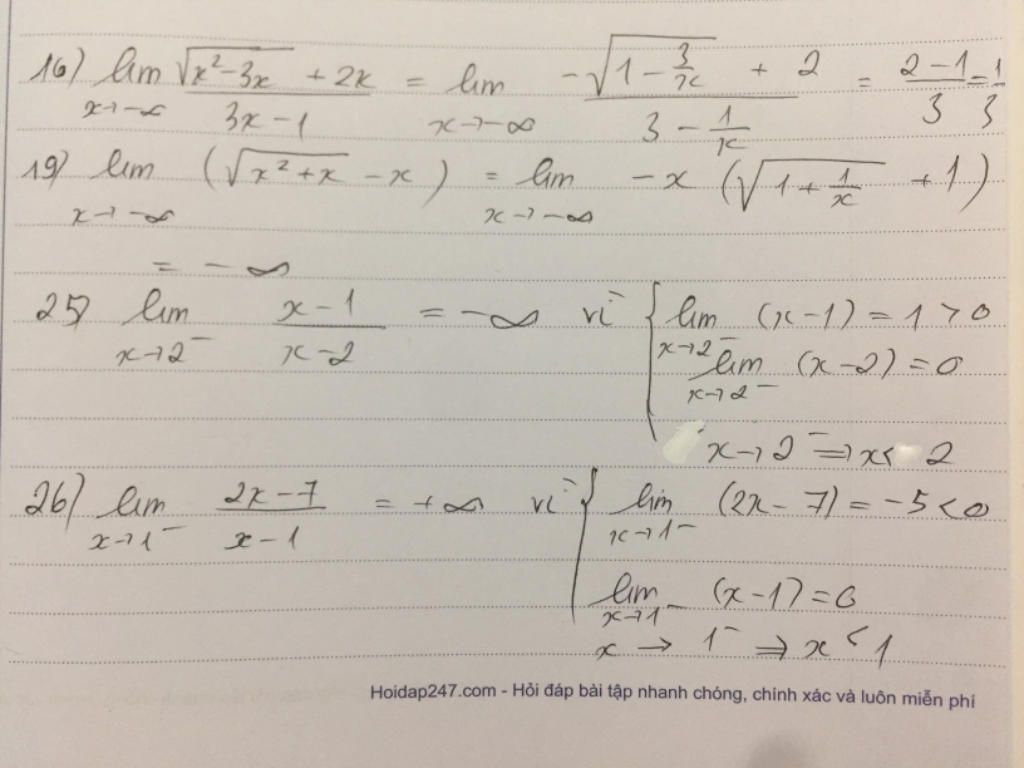 16) lim x→-∞ (√(x²-3x) + 2x)/(3x-1) = lim x→-∞ (-√(1-3/x) + 2)/(3-1/x) = (2-1)/3 = 1/3
19) lim x→-∞ (√(x²+x) - x) = lim x→-∞ -x (√(1+1/x) + 1)
= -∞
25) lim x→2⁻ (x-1)/(x-2) = -∞ vì { lim x→2⁻ (x-1) = 1 > 0
lim x→2⁻ (x-2) = 0
x→2⁻ ⇒ x < 2
26) lim x→1⁻ (2x-7)/(x-1) = +∞ vì { lim x→1⁻ (2x-7) = -5 < 0
lim x→1⁻ (x-1) = 0
x → 1⁻ ⇒ x < 1
Hoidap247.com - Hỏi đáp bài tập nhanh chóng, chính xác và luôn miễn phí